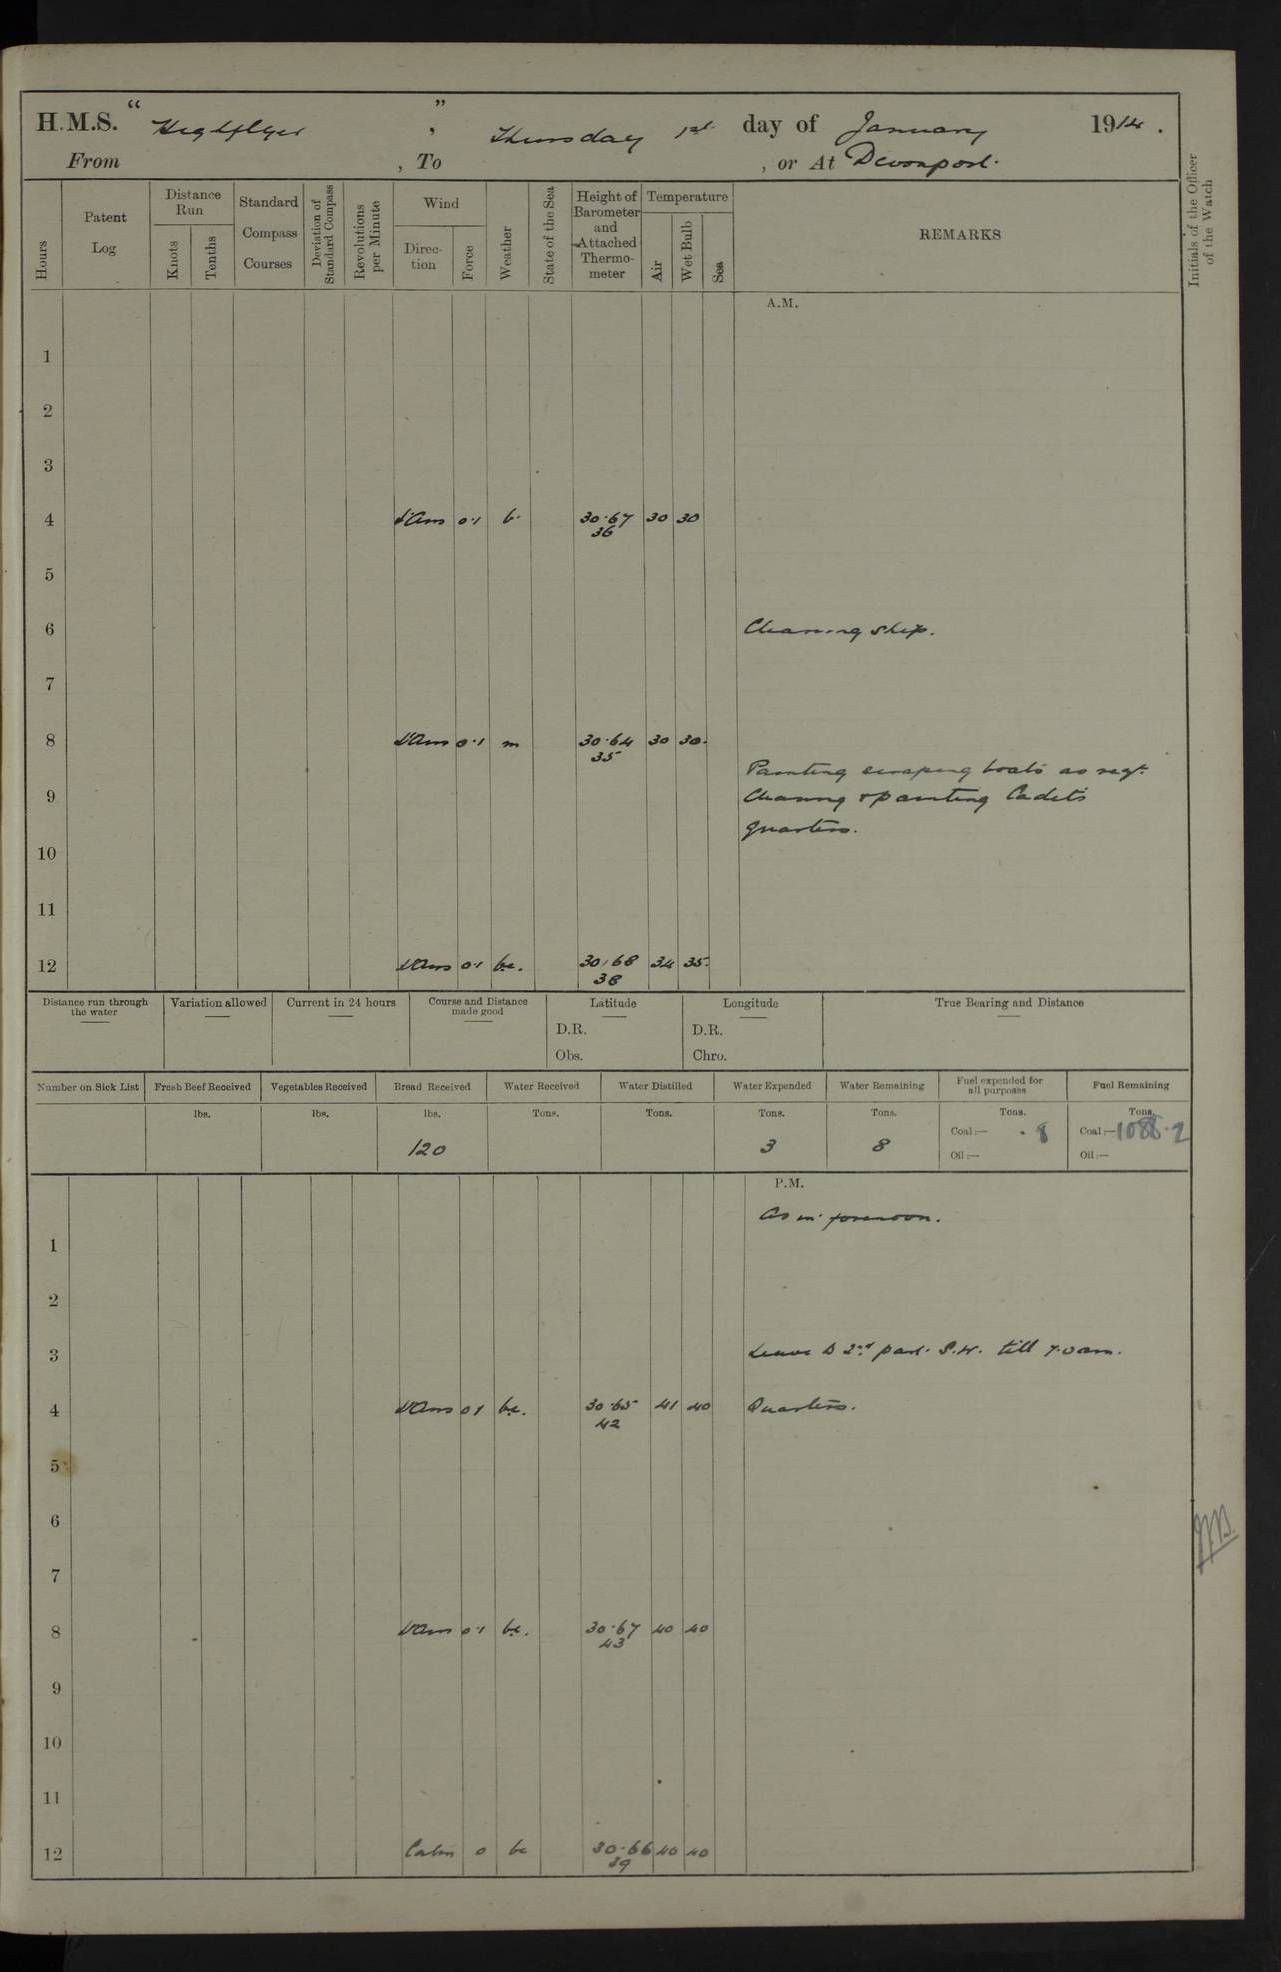 H.M.S. “ Highflyer ” , Thursday 1st day of January 1914 .
From , To , or At Devonport.
Hours
Patent Log
Distance Run
Knots
Tenths
Standard Compass Courses
Deviation of Standard Compass
Revolutions per Minute
Wind
Direction
Force
Weather
State of the Sea
Height of Barometer and Attached Thermometer
Temperature
Air
Wet Bulb
Sea
REMARKS
Initials of the Officer of the Watch
A.M.
1
2
3
4 Vars 0.1 b. 30.67 30 30
36
5
6 Cleaning ship.
7
8 Vars 0.1 m 30.64 30 30.
35
Painting scraping boats as reqt.
9 Cleaning & painting Cadets
quarters.
10
11
12 Vars 0.1 bc. 30.68 34 35.
38
Distance run through the water
Variation allowed
Current in 24 hours
Course and Distance made good
Latitude
D.R.
Obs.
Longitude
D.R.
Chro.
True Bearing and Distance
Number on Sick List
Fresh Beef Received
lbs.
Vegetables Received
lbs.
Bread Received
lbs.
120
Water Received
Tons.
Water Distilled
Tons.
Water Expended
Tons.
3
Water Remaining
Tons.
8
Fuel expended for all purposes
Tons.
Coal:— .8
Oil:—
Fuel Remaining
Tons.
Coal:— 1088.2
Oil:—
P.M.
As in forenoon.
1
2
3 Leave to 2nd part S.W. till 7.0 am.
4 Vars 0 1 bc. 30.65 41 40 Quarters.
42
5
6
7
8 Vars 0.1 bc. 30.67 40 40
43
9
10
11
12 Calm 0 bc 30.66 40 40
39